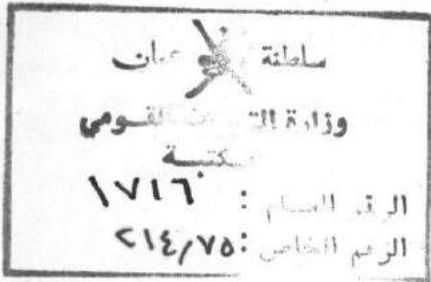 سلطنة عمان
وزارة التراث القومي
مكتبة
الرقم العام : ١٧١٦
الرقم الخاص : ٢١٤٫٧٥